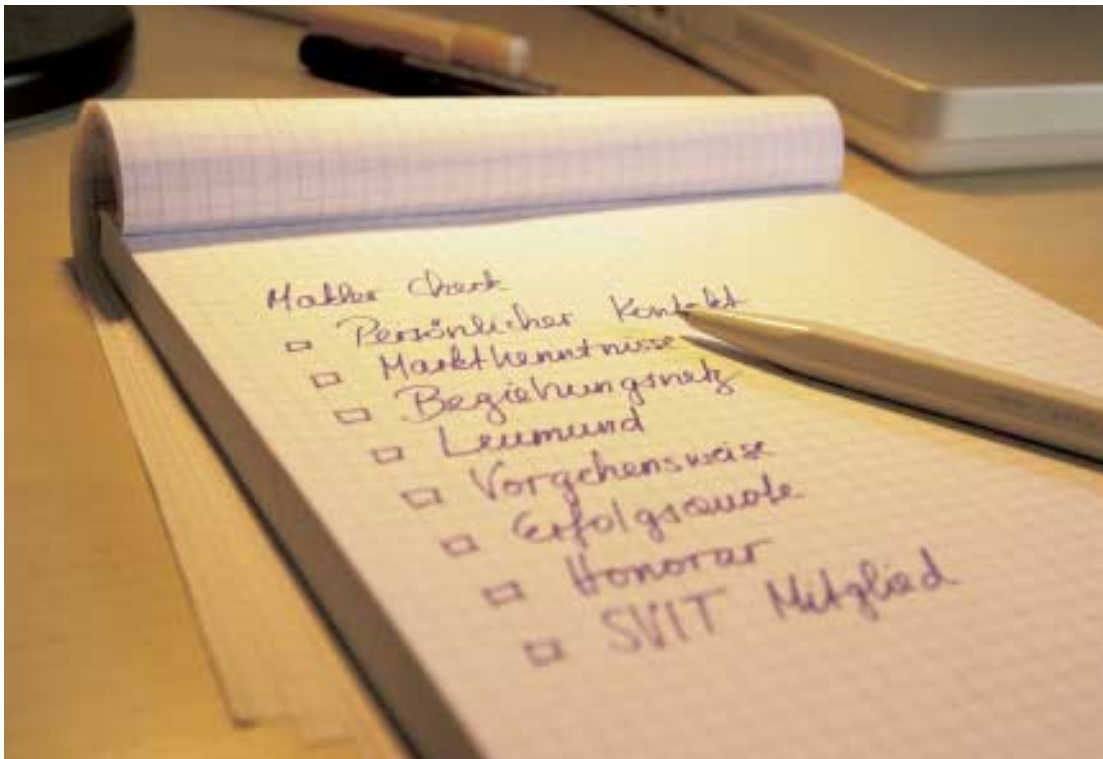 Makler Check
Persönlicher Kontakt
Marktkenntnisse
Beziehungsnetz
Leumund
Vorgehensweise
Erfolgsquote
Honorar
SVIT Mitglied